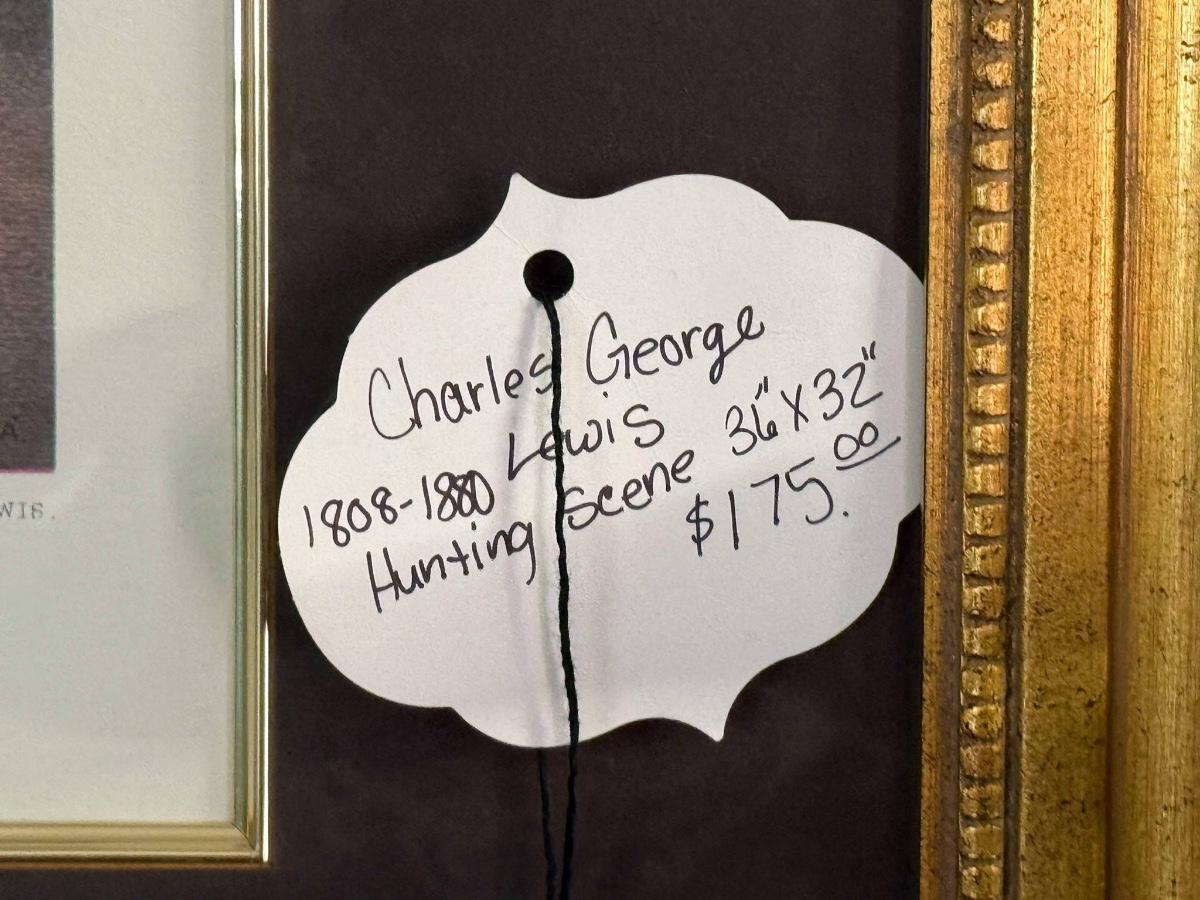 Charles George
Lewis
1808-1880
Hunting Scene 36" X 32"
$175.00
A
WIS.